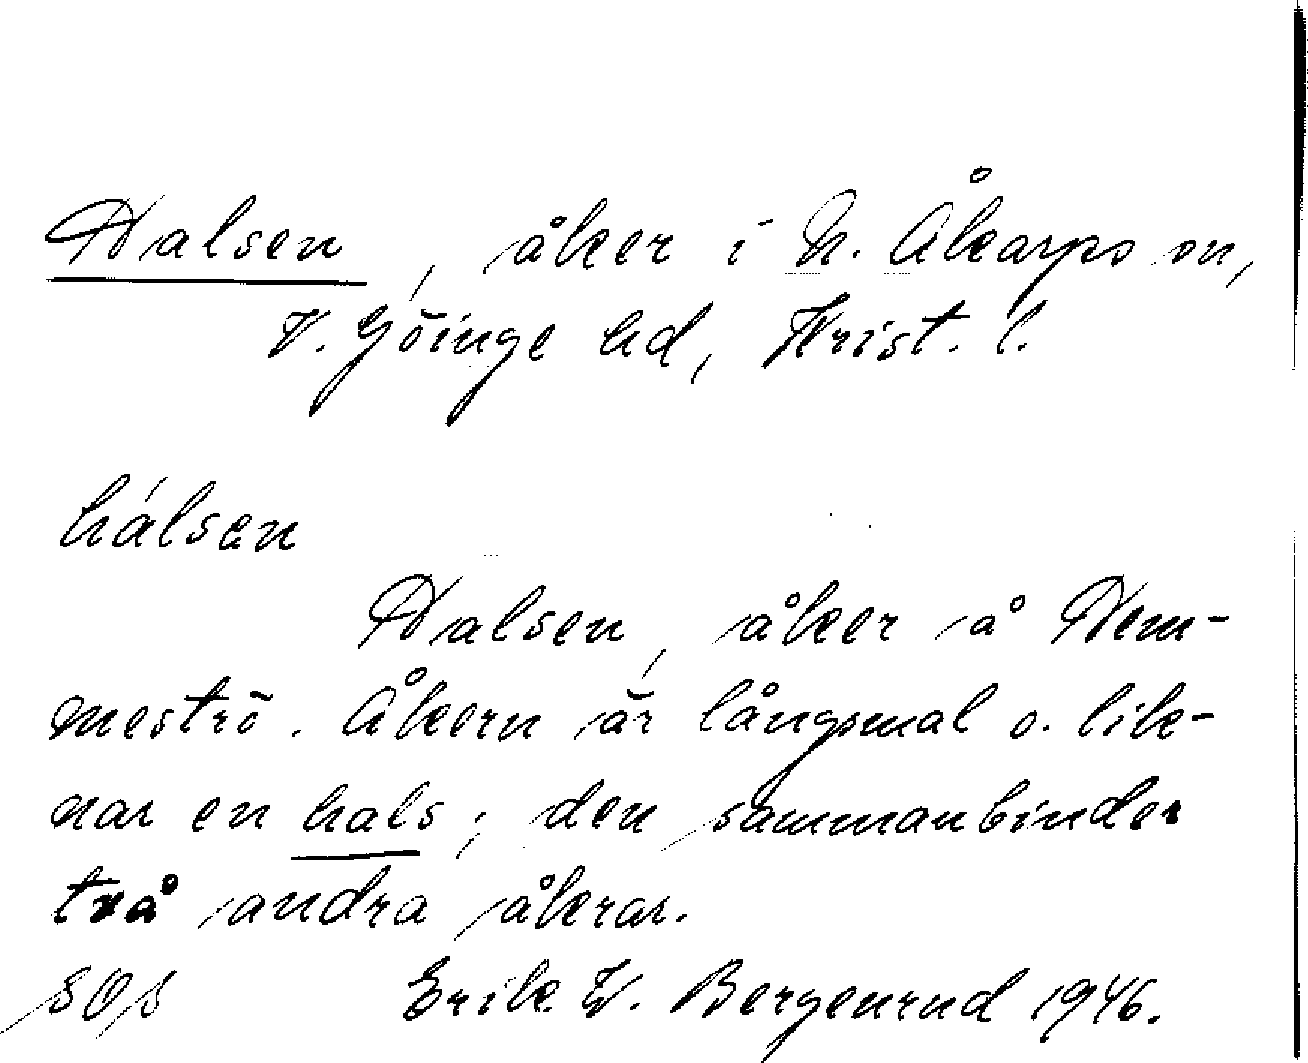 Halsen, åker i N. Åkarps sn,
V. Göinge hd, Krist. l.
hálsen
Halsen, åker å Hem-
meströ. Åkern är långsmal o. lik-
nar en hals; den sammanbinder
två andra åkrar.
Erik W. Bergenrud 1946.